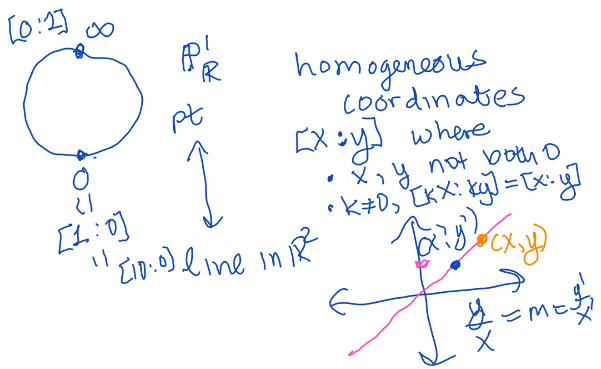 [0:1] ∞
ℙ¹_ℝ
pt
0
=
[1:0]
=
[10:0] line in ℝ²
homogeneous
coordinates
[x:y] where
• x, y not both 0
• k≠0, [kx:ky]=[x:y]
(x',y')
(x,y)
y/x = m = y'/x'